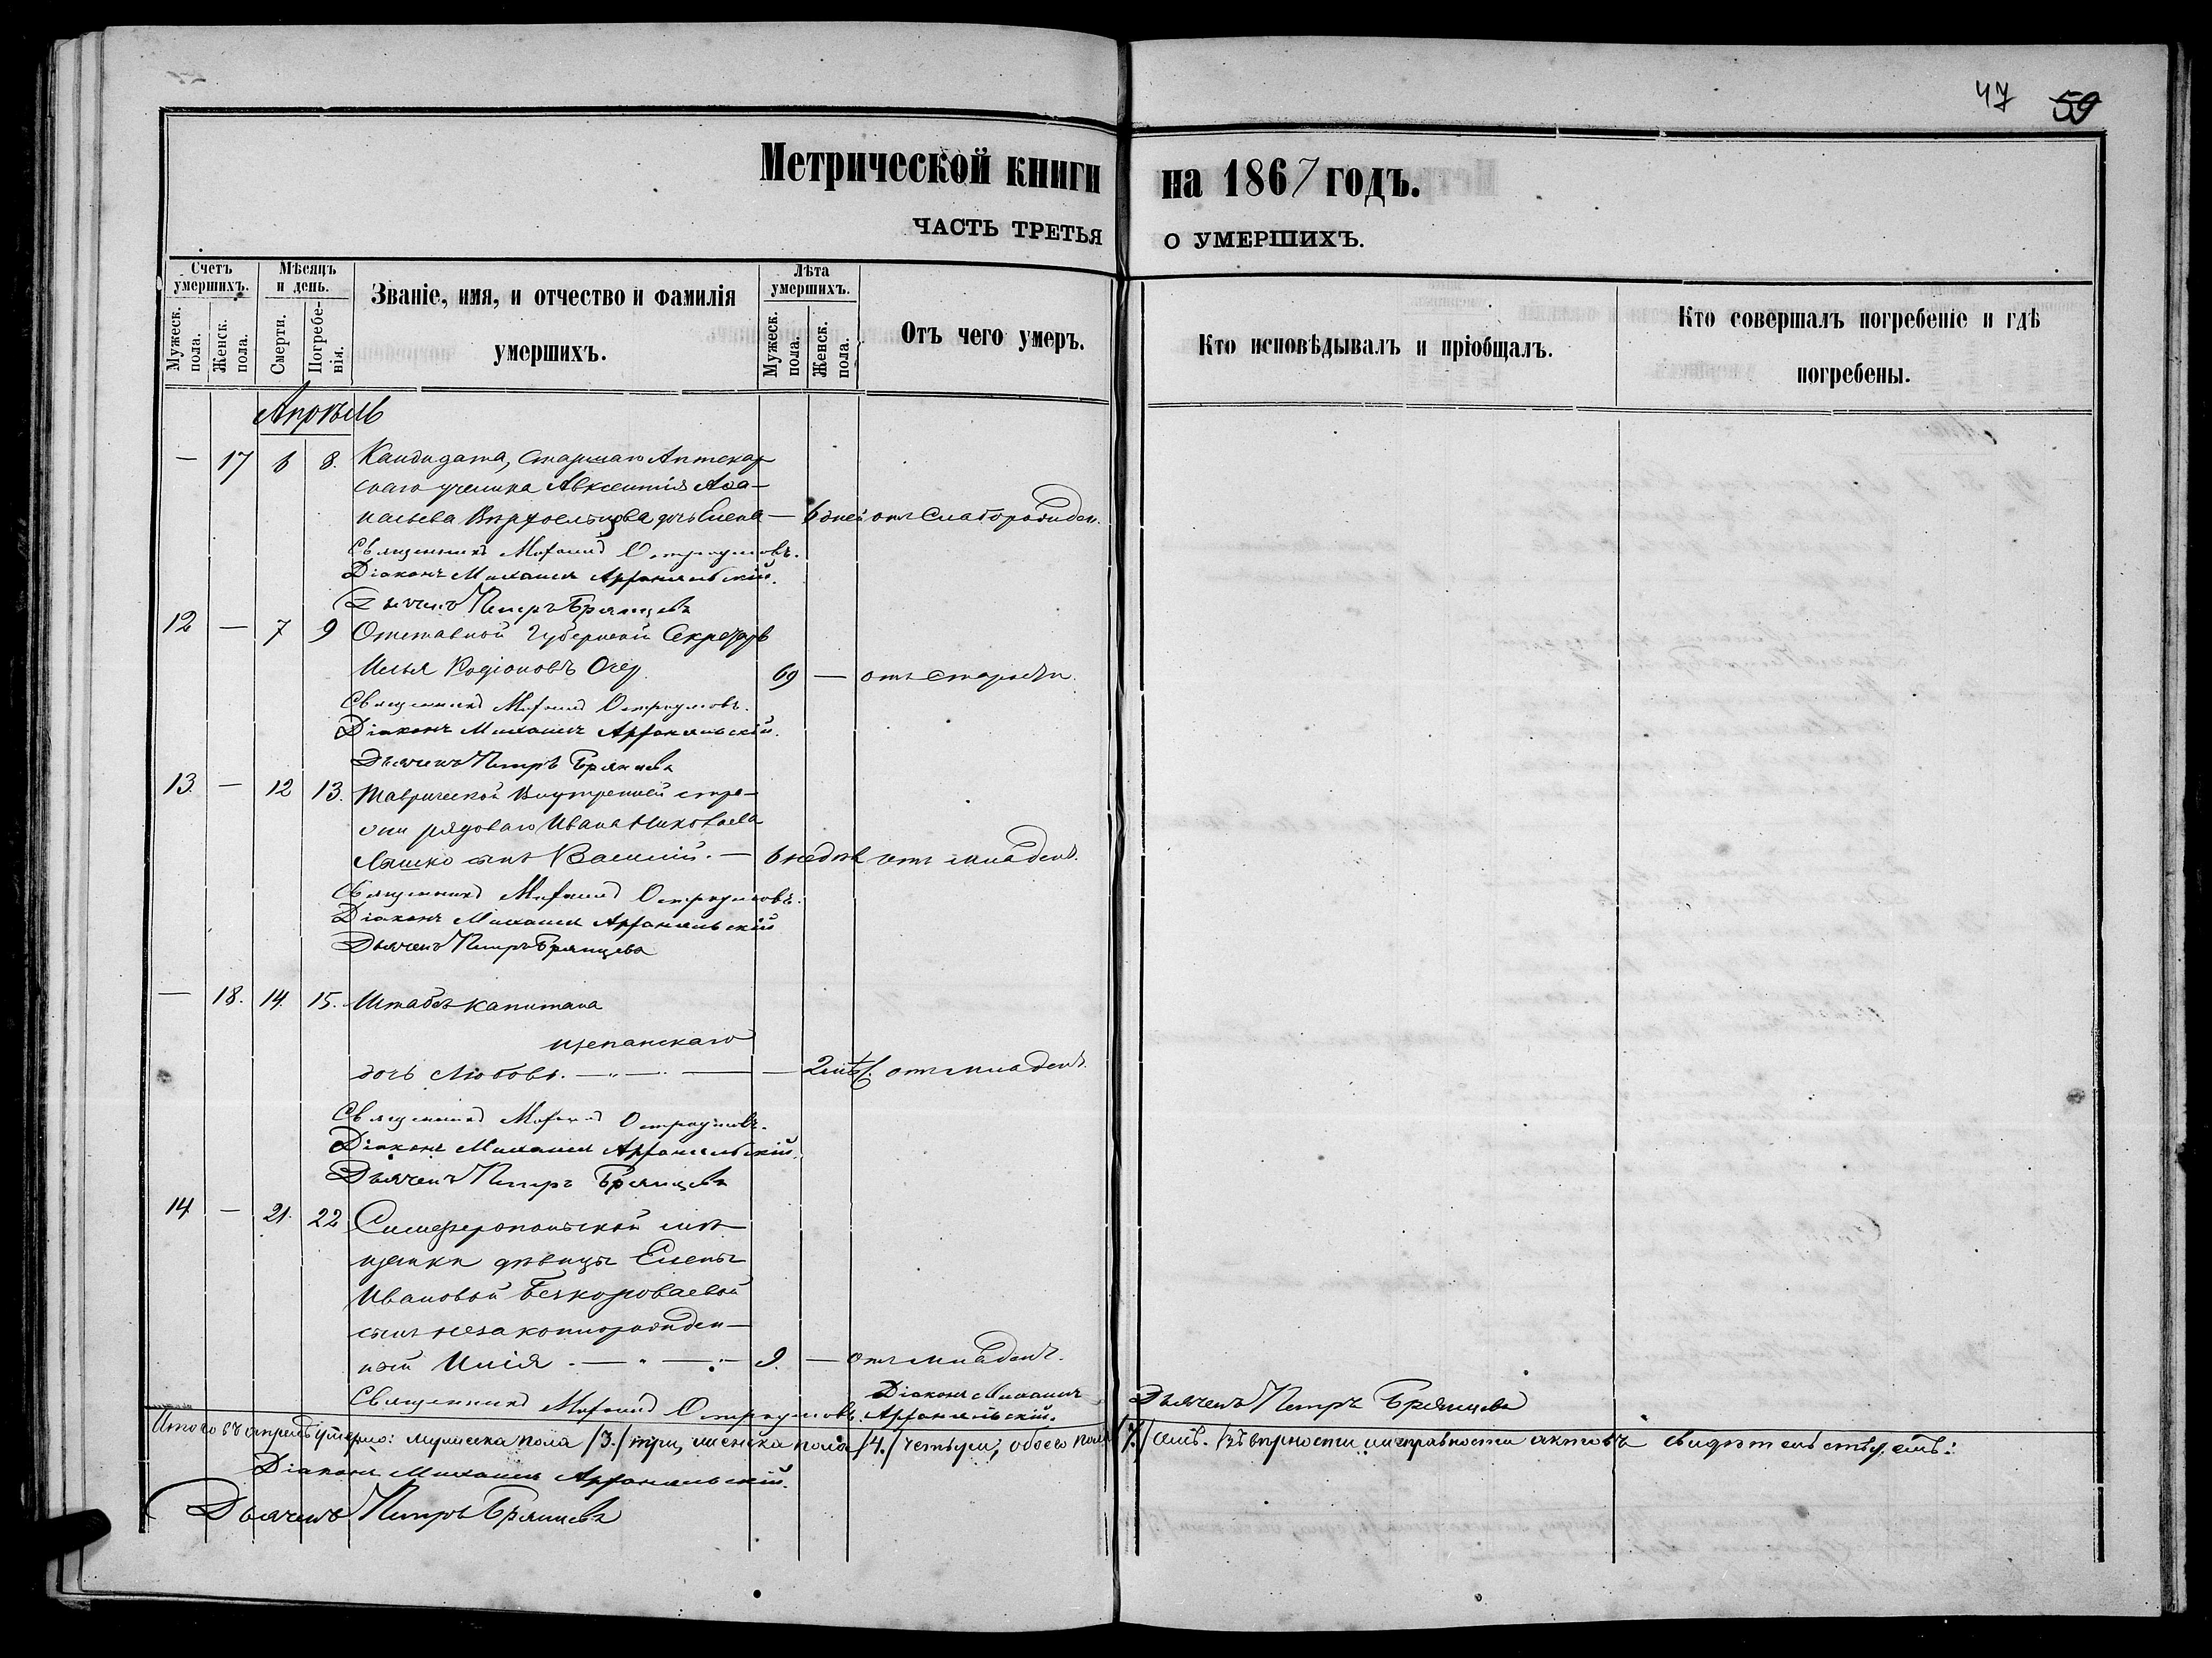 47 59
Метрической книги на 1867 годъ.
ЧАСТЬ ТРЕТЬЯ О УМЕРШИХЪ.
Счетъ умершихъ.
Мужеск. пола.
Женск. пола.
Мѣсяцъ и день.
Смерти.
Погребе-нія.
Званіе, имя, и отчество и фамилія
умершихъ.
Лѣта умершихъ.
Мужеск. пола.
Женск. пола.
Отъ чего умеръ.
Кто исповѣдывалъ и пріобщалъ.
Кто совершалъ погребеніе и гдѣ
погребены.
Апрѣль
— 17 6 8. Кандидата, Старшаго Аптекар
скаго ученика Авксентія Афа-
насьева дочь Елена — 6 дней отъ Слаборожден.
Священникъ Остроумовъ.
Діаконъ Михаилъ Архангельскій.
Дьячекъ Петръ Брянцевъ
12 — 7 9 Отставной Губернскій Секретарь
Илья Родіоновъ 69 — отъ Старости.
Священникъ Остроумовъ.
Діаконъ Михаилъ Архангельскій.
Дьячекъ Петръ Брянцевъ
13. — 12 13. Таврической Внутренней стра-
жи рядоваго Ивана Николаева
Ляшко сынъ Василій. — 6 недѣл отъ младен.
Священникъ Остроумовъ.
Діаконъ Михаилъ Архангельскій
Дьячекъ Петръ Брянцевъ
— 18. 14. 15. Штабсъ капитана
щепанскаго
дочь Любовь. — — 2 отъ младен.
Священникъ Остроумовъ.
Діаконъ Михаилъ Архангельскій.
Дьячекъ Петръ Брянцевъ
14 — 21. 22 Симферопольской мѣ-
щанки дѣвицы Елены
Ивановой Безкороваевой
сынъ незаконнорожден-
ной Илія — 9. — отъ младен.
Священникъ Остроумовъ. Діаконъ Михаилъ Архангельскій. Дьячекъ Петръ Брянцевъ
Итого въ апрелѣ умерло: мужеска пола /3./ три, женска пола /4./ четыри, обоего пола /7./ семь. Въ вѣрности и исправности актовъ свидѣтельствуемъ:
Діаконъ Михаилъ Архангельскій.
Дьячекъ Петръ Брянцевъ